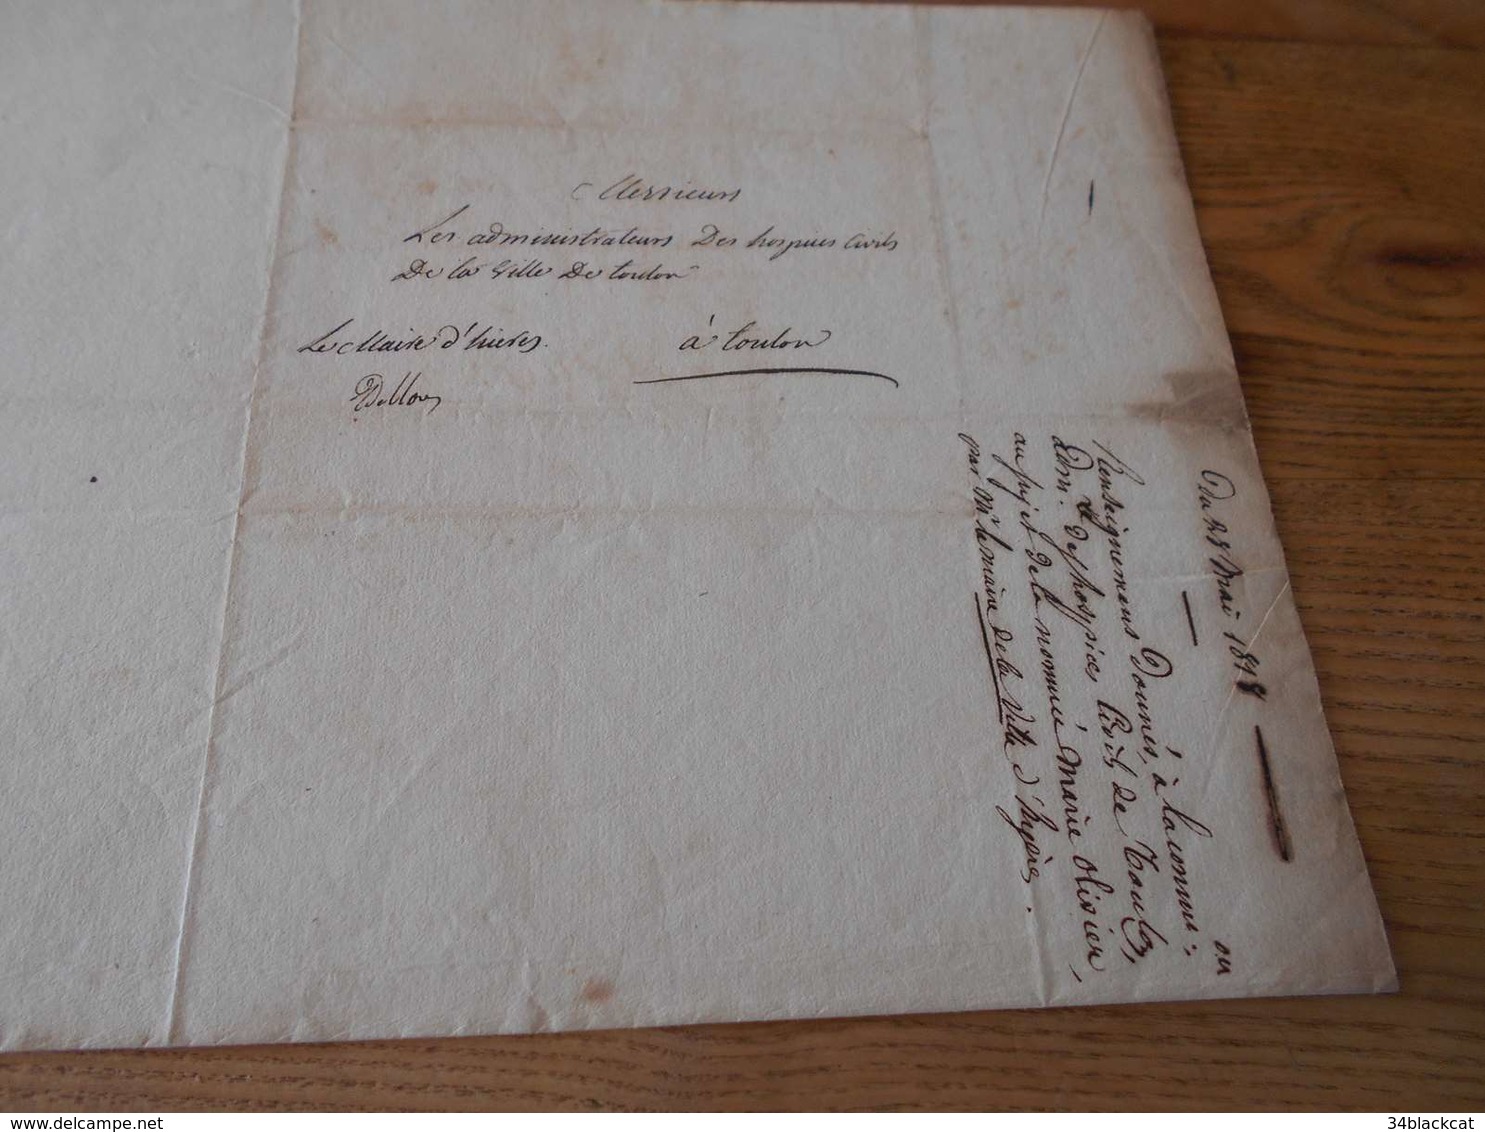 Messieurs
Les administrateurs Des hospices Civils
De la Ville De toulon
Le Maire d'hieres. à toulon
Du 23 Mai 1818
Renseignemens Donnés, à la commi:on
adm. des hospices Civils de Toulon,
au sujet de la nommée Marie Olivier,
par Mr le maire de la Ville d'hyères.
www.delcampe.net
34blackcat